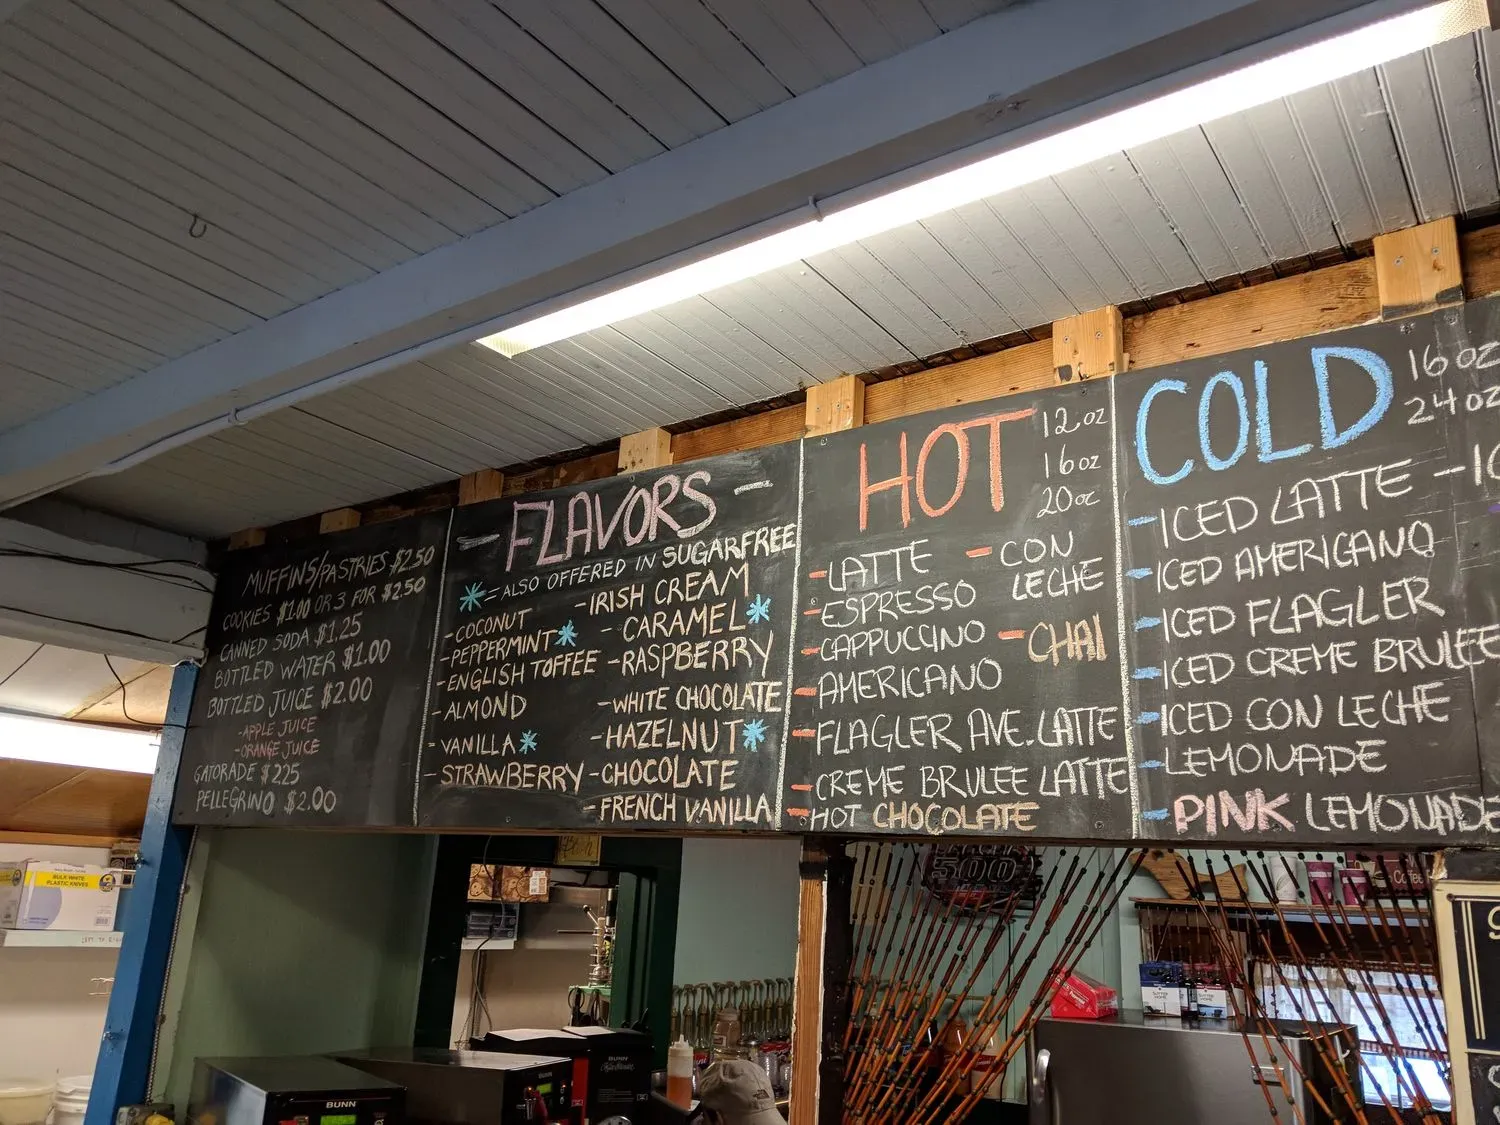 MUFFINS/PASTRIES $2.50
COOKIES $1.00 OR 3 FOR $2.50
CANNED SODA $1.25
BOTTLED WATER $1.00
BOTTLED JUICE $2.00
-APPLE JUICE
-ORANGE JUICE
GATORADE $2.25
PELLEGRINO $2.00
- FLAVORS -
* = ALSO OFFERED IN SUGARFREE
- COCONUT
- PEPPERMINT *
- ENGLISH TOFFEE
- ALMOND
- VANILLA *
- STRAWBERRY
- IRISH CREAM
- CARAMEL *
- RASPBERRY
- WHITE CHOCOLATE
- HAZELNUT *
- CHOCOLATE
- FRENCH VANILLA
HOT
12 oz
16 oz
20 oz
- LATTE
- ESPRESSO
- CAPPUCCINO
- AMERICANO
- FLAGLER AVE. LATTE
- CREME BRULEE LATTE
- HOT CHOCOLATE
- CON
LECHE
- CHAI
COLD
16 oz
24 oz
- ICED LATTE -
- ICED AMERICANO
- ICED FLAGLER
- ICED CREME BRULEE
- ICED CON LECHE
- LEMONADE
- PINK LEMONADE
BULK WHITE
PLASTIC KNIVES
500
Coffee
SUTTER
HOME
SUTTER
HOME
BUNN
BUNN
BUNN